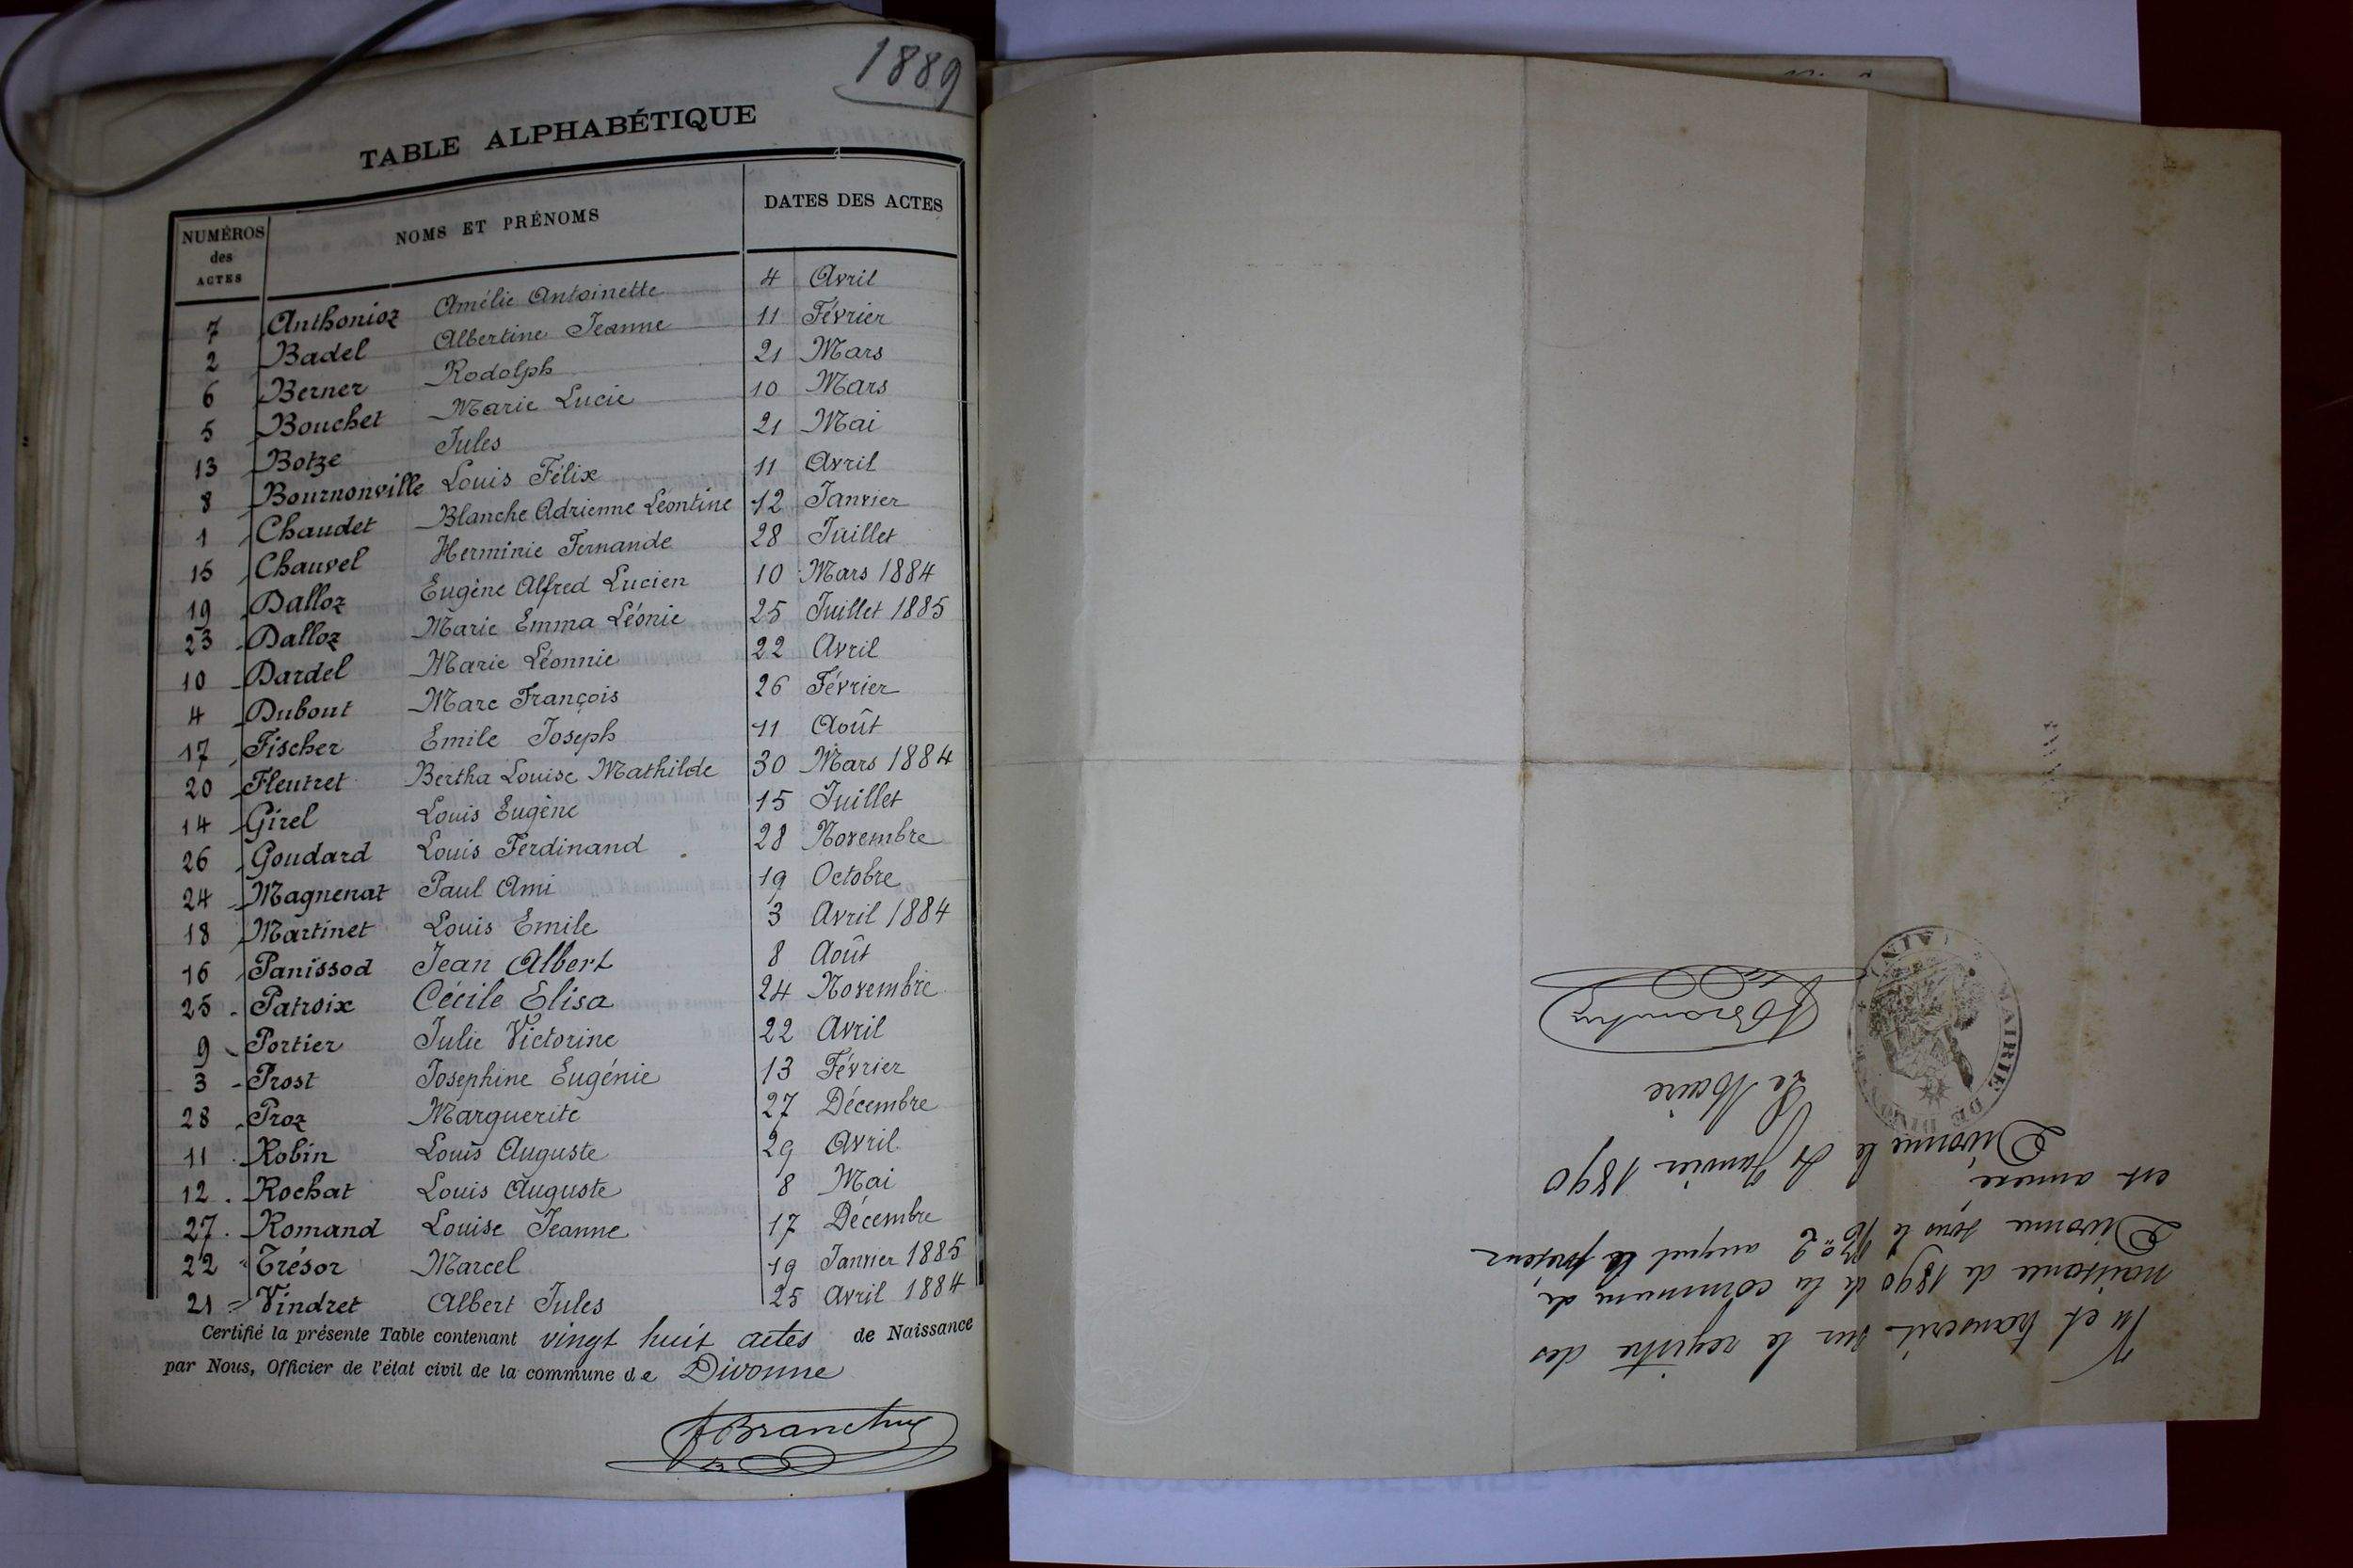 1889
TABLE ALPHABÉTIQUE
NUMÉROS des ACTES NOMS ET PRÉNOMS DATES DES ACTES
7 Anthonioz Amélie Antoinette 4 Avril
2 Badel Albertine Jeanne 11 Février
6 Berner Rodolph 21 Mars
5 Bouchet Marie Lucie 10 Mars
13 Botze Jules 21 Mai
8 Bournonville Louis Félix 11 Avril
1 Chaudet Blanche Adrienne Léontine 12 Janvier
15 Chauvel Herminie Fernande 28 Juillet
19 Dalloz Eugène Alfred Lucien 10 Mars 1884
23 Dalloz Marie Emma Léonie 25 Juillet 1885
10 Dardel Marie Léonnie 22 Avril
4 Dubout Marc François 26 Février
17 Fischer Emile Joseph 11 Août
20 Fleutret Bertha Louise Mathilde 30 Mars 1884
14 Girel Louis Eugène 15 Juillet
26 Goudard Louis Ferdinand 28 Novembre
24 Magnenat Paul Ami 19 Octobre
18 Martinet Louis Emile 3 Avril 1884
16 Panissod Jean Albert 8 Août
25 Patroix Cécile Elisa 24 Novembre
9 Portier Julie Victorine 22 Avril
3 Prost Josephine Eugénie 13 Février
28 Proz Marguerite 27 Décembre
11 Robin Louis Auguste 29 Avril
12 Rochat Louis Auguste 8 Mai
27 Romand Louise Jeanne 17 Décembre
22 Trésor Marcel 19 Janvier 1885
21 Vindret Albert Jules 25 Avril 1884
Certifié la présente Table contenant vingt huit actes de Naissance
par Nous, Officier de l'état civil de la commune de Divonne
Vu et transcrit sur le registre des
naissance de 1890 de la commune de
Divonne sous le No 2 auquel le présent
est annexé
Divonne le Janvier 1890
Le Maire
MAIRIE DE DIVONNE (AIN)